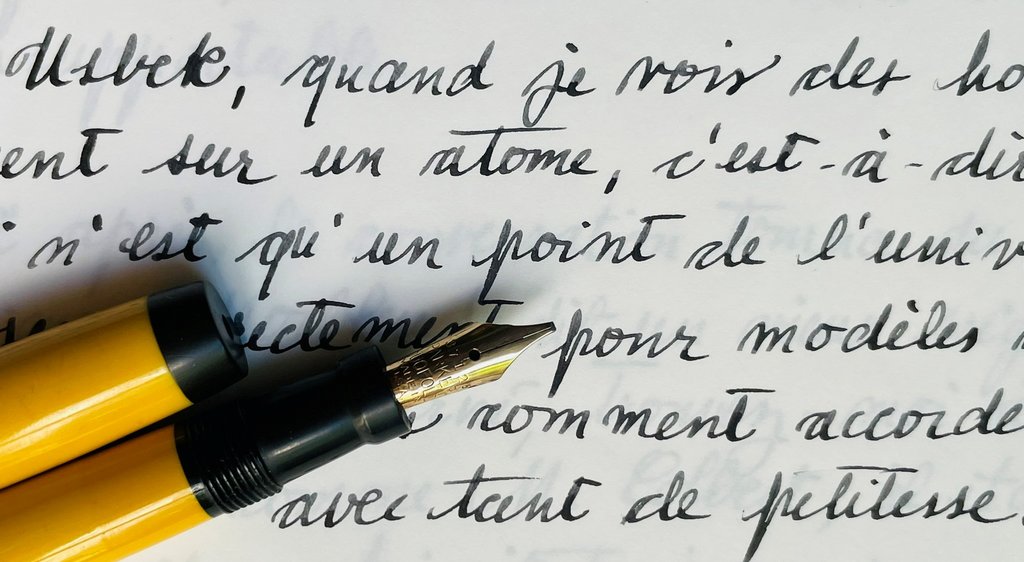 Usbek, quand je vois des ho
ent sur un atome, c'est-à-dir
i n'est qu'un point de l'univ
rectement pour modèles
comment accorde
avec tant de petitesse.